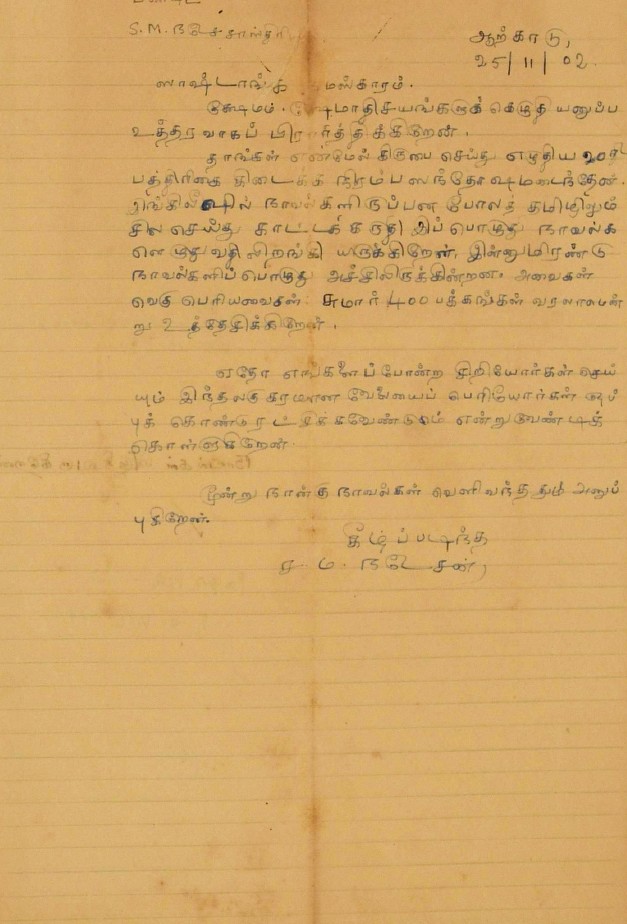 S.M. நடேச சாஸ்திரி
ஆற்காடு,
25/11/02.
ஸாஷ்டாங்க நமஸ்காரம்.
க்ஷேமம். க்ஷேமாதிசயங்களுக் கெழுதி யனுப்ப
உத்தரவாகப் பிரார்த்திக்கிறேன்.
தாங்கள் என்மேல் கிருபை செய்து எழுதிய 20ந்
பத்திரிகை கிடைக்க நிரம்ப ஸந்தோஷமடைந்தேன்.
இங்கிலீஷில் நாவல்களிருப்பன போலத் தமிழிலும்
சில செய்து காட்டக் கருதி இப்பொழுது நாவல்க
ளெழுதுவதிலிறங்கி யிருக்கிறேன். இன்னுமிரண்டு
நாவல்களிப்பொழுது அச்சிலிருக்கின்றன. அவைகள்
வெகு பெரியவைகள். சுமார் 400 பக்கங்கள் வரலாமென்
று உத்தேசிக்கிறேன்.
ஏதோ எங்களைப்போன்ற சிறியோர்கள் செய்
யும் இந்த லகுகரமான வேலையைப் பெரியோர்கள்
புக் கொண்டு ரட்சிக்கவேண்டும் என்று வேண்டிக்
கொள்ளுகிறேன்.
மூன்று நான்கு நாவல்கள் வெளிவந்ததும் அனுப்
புகிறேன்.
கீழ்ப்படிந்த
ச. ம. நடேசன்,